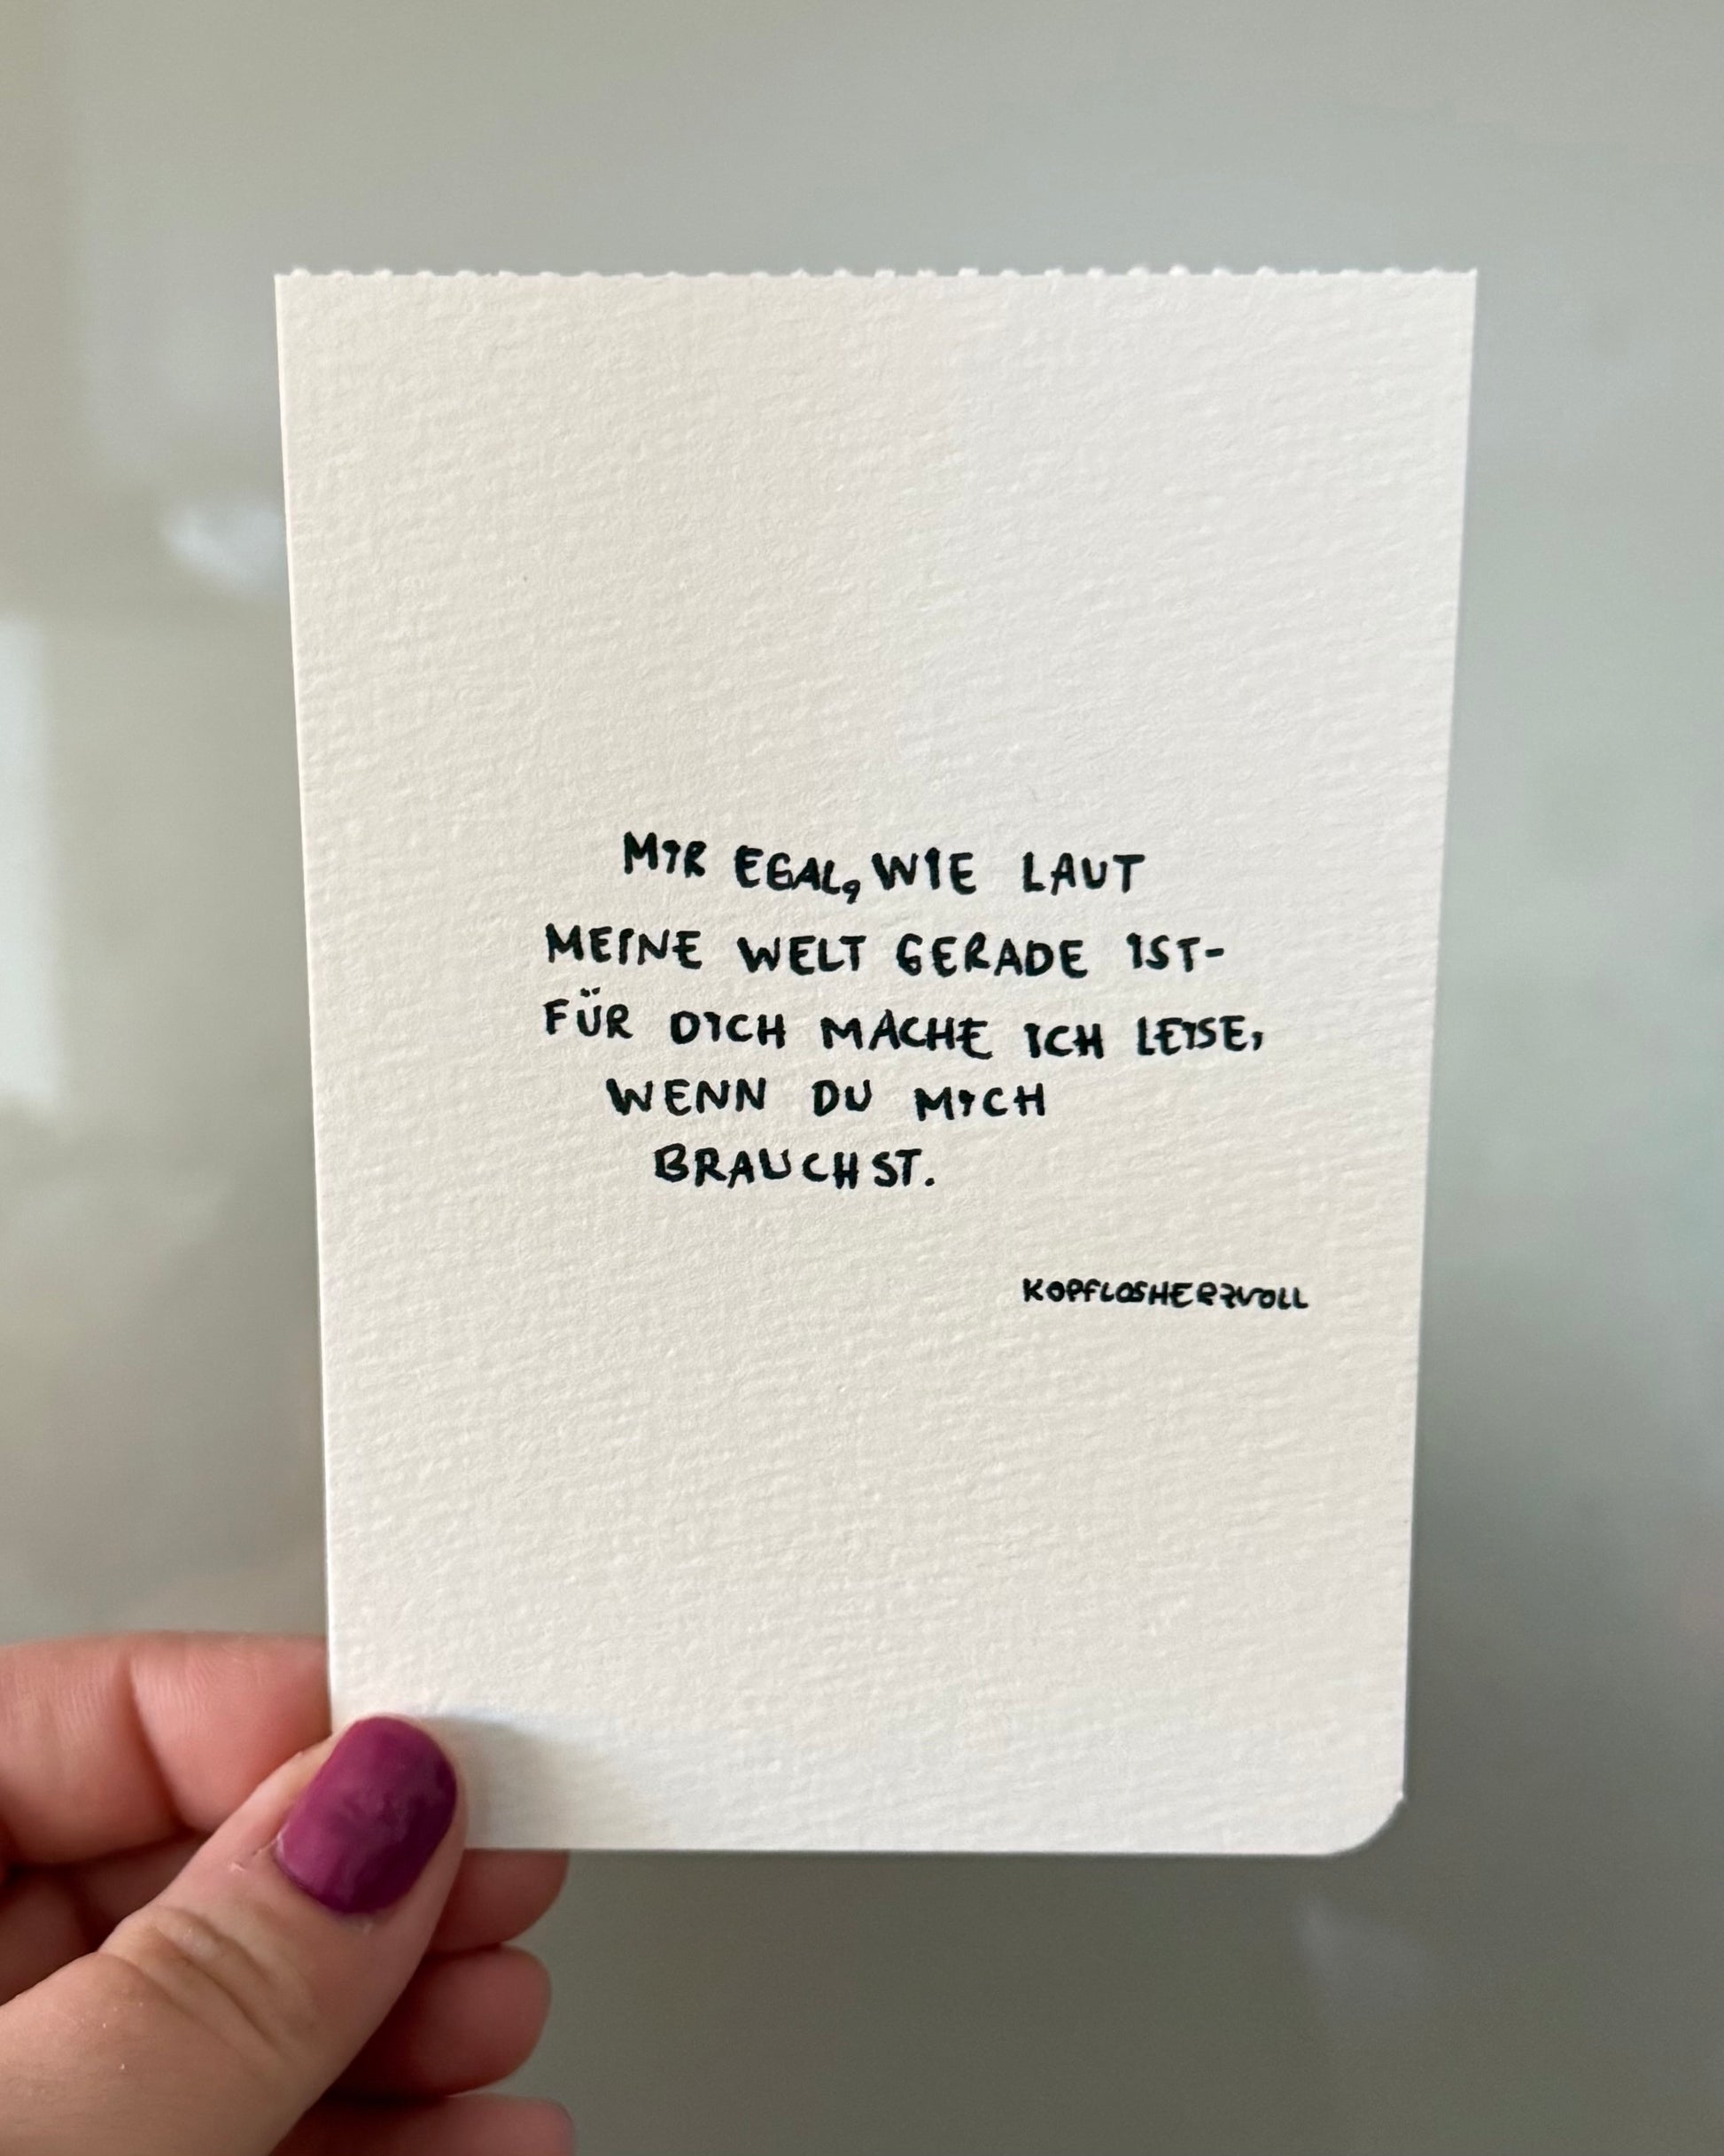 MIR EGAL, WIE LAUT
MEINE WELT GERADE IST-
FÜR DICH MACHE ICH LEISE,
WENN DU MICH
BRAUCHST.
KOPFLOSHERZVOLL